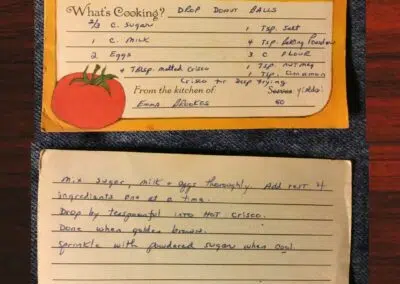 What's Cooking? DROP DONUT BALLS
2/3 C. Sugar 1 Tsp. Salt
1 C. Milk 4 Tsp. Baking Powder
2 Eggs 3 C FLOUR
4 TBLSP. melted Crisco 1 Tsp. nutmeg
1 Tsp. Cinnamon
Crisco for Deep Frying
From the kitchen of: Serves: yields:
Emma BROOKES 50
Mix sugar, milk + eggs thoroughly. Add rest of
ingredients one at a time.
Drop by teaspoonful INTO HOT Crisco.
Done when golden brown.
Sprinkle with powdered sugar when cool.